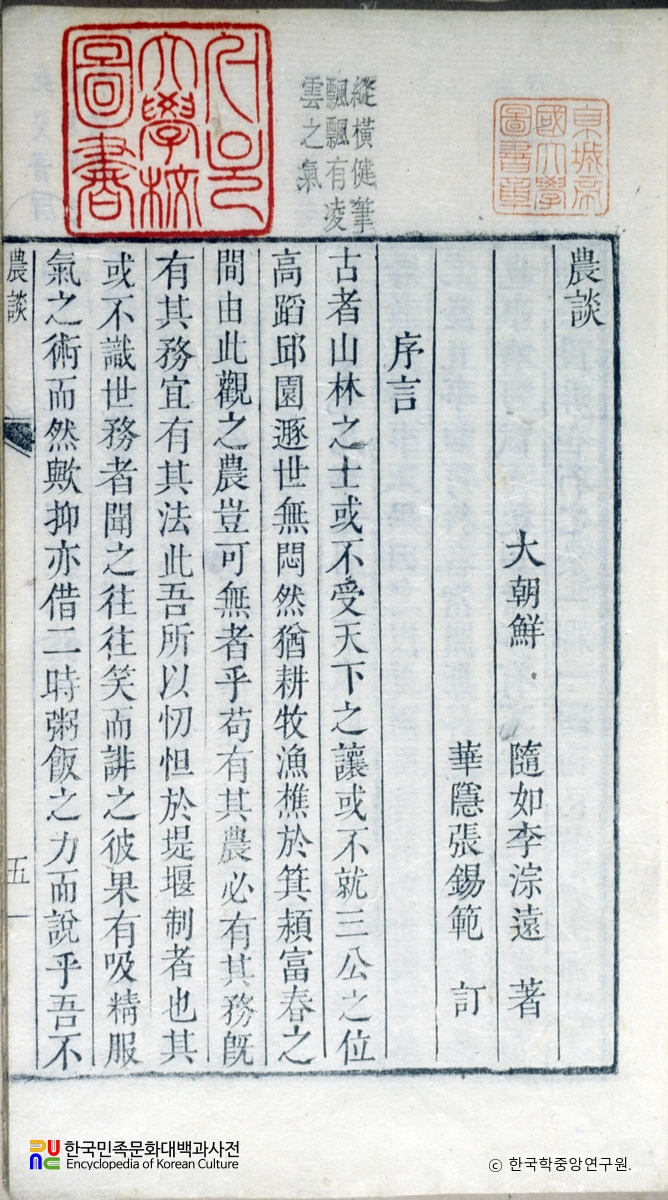 京城帝
國大學
圖書章
縱橫健筆
飄飄有凌
雲之氣
서울
大學校
圖書
農談
大朝鮮 隨如李淙遠 著
華隱張錫範 訂
序言
古者山林之士或不受天下之讓或不就三公之位
高蹈邱園遯世無悶然猶耕牧漁樵於箕潁富春之
間由此觀之農豈可無者乎苟有其農必有其務旣
有其務宜有其法此吾所以忉怛於堤堰制者也其
或不識世務者聞之往往笑而誹之彼果有吸精服
氣之術而然歟抑亦借二時粥飯之力而說乎吾不
農談
五
한국민족문화대백과사전
Encyclopedia of Korean Culture
ⓒ 한국학중앙연구원.